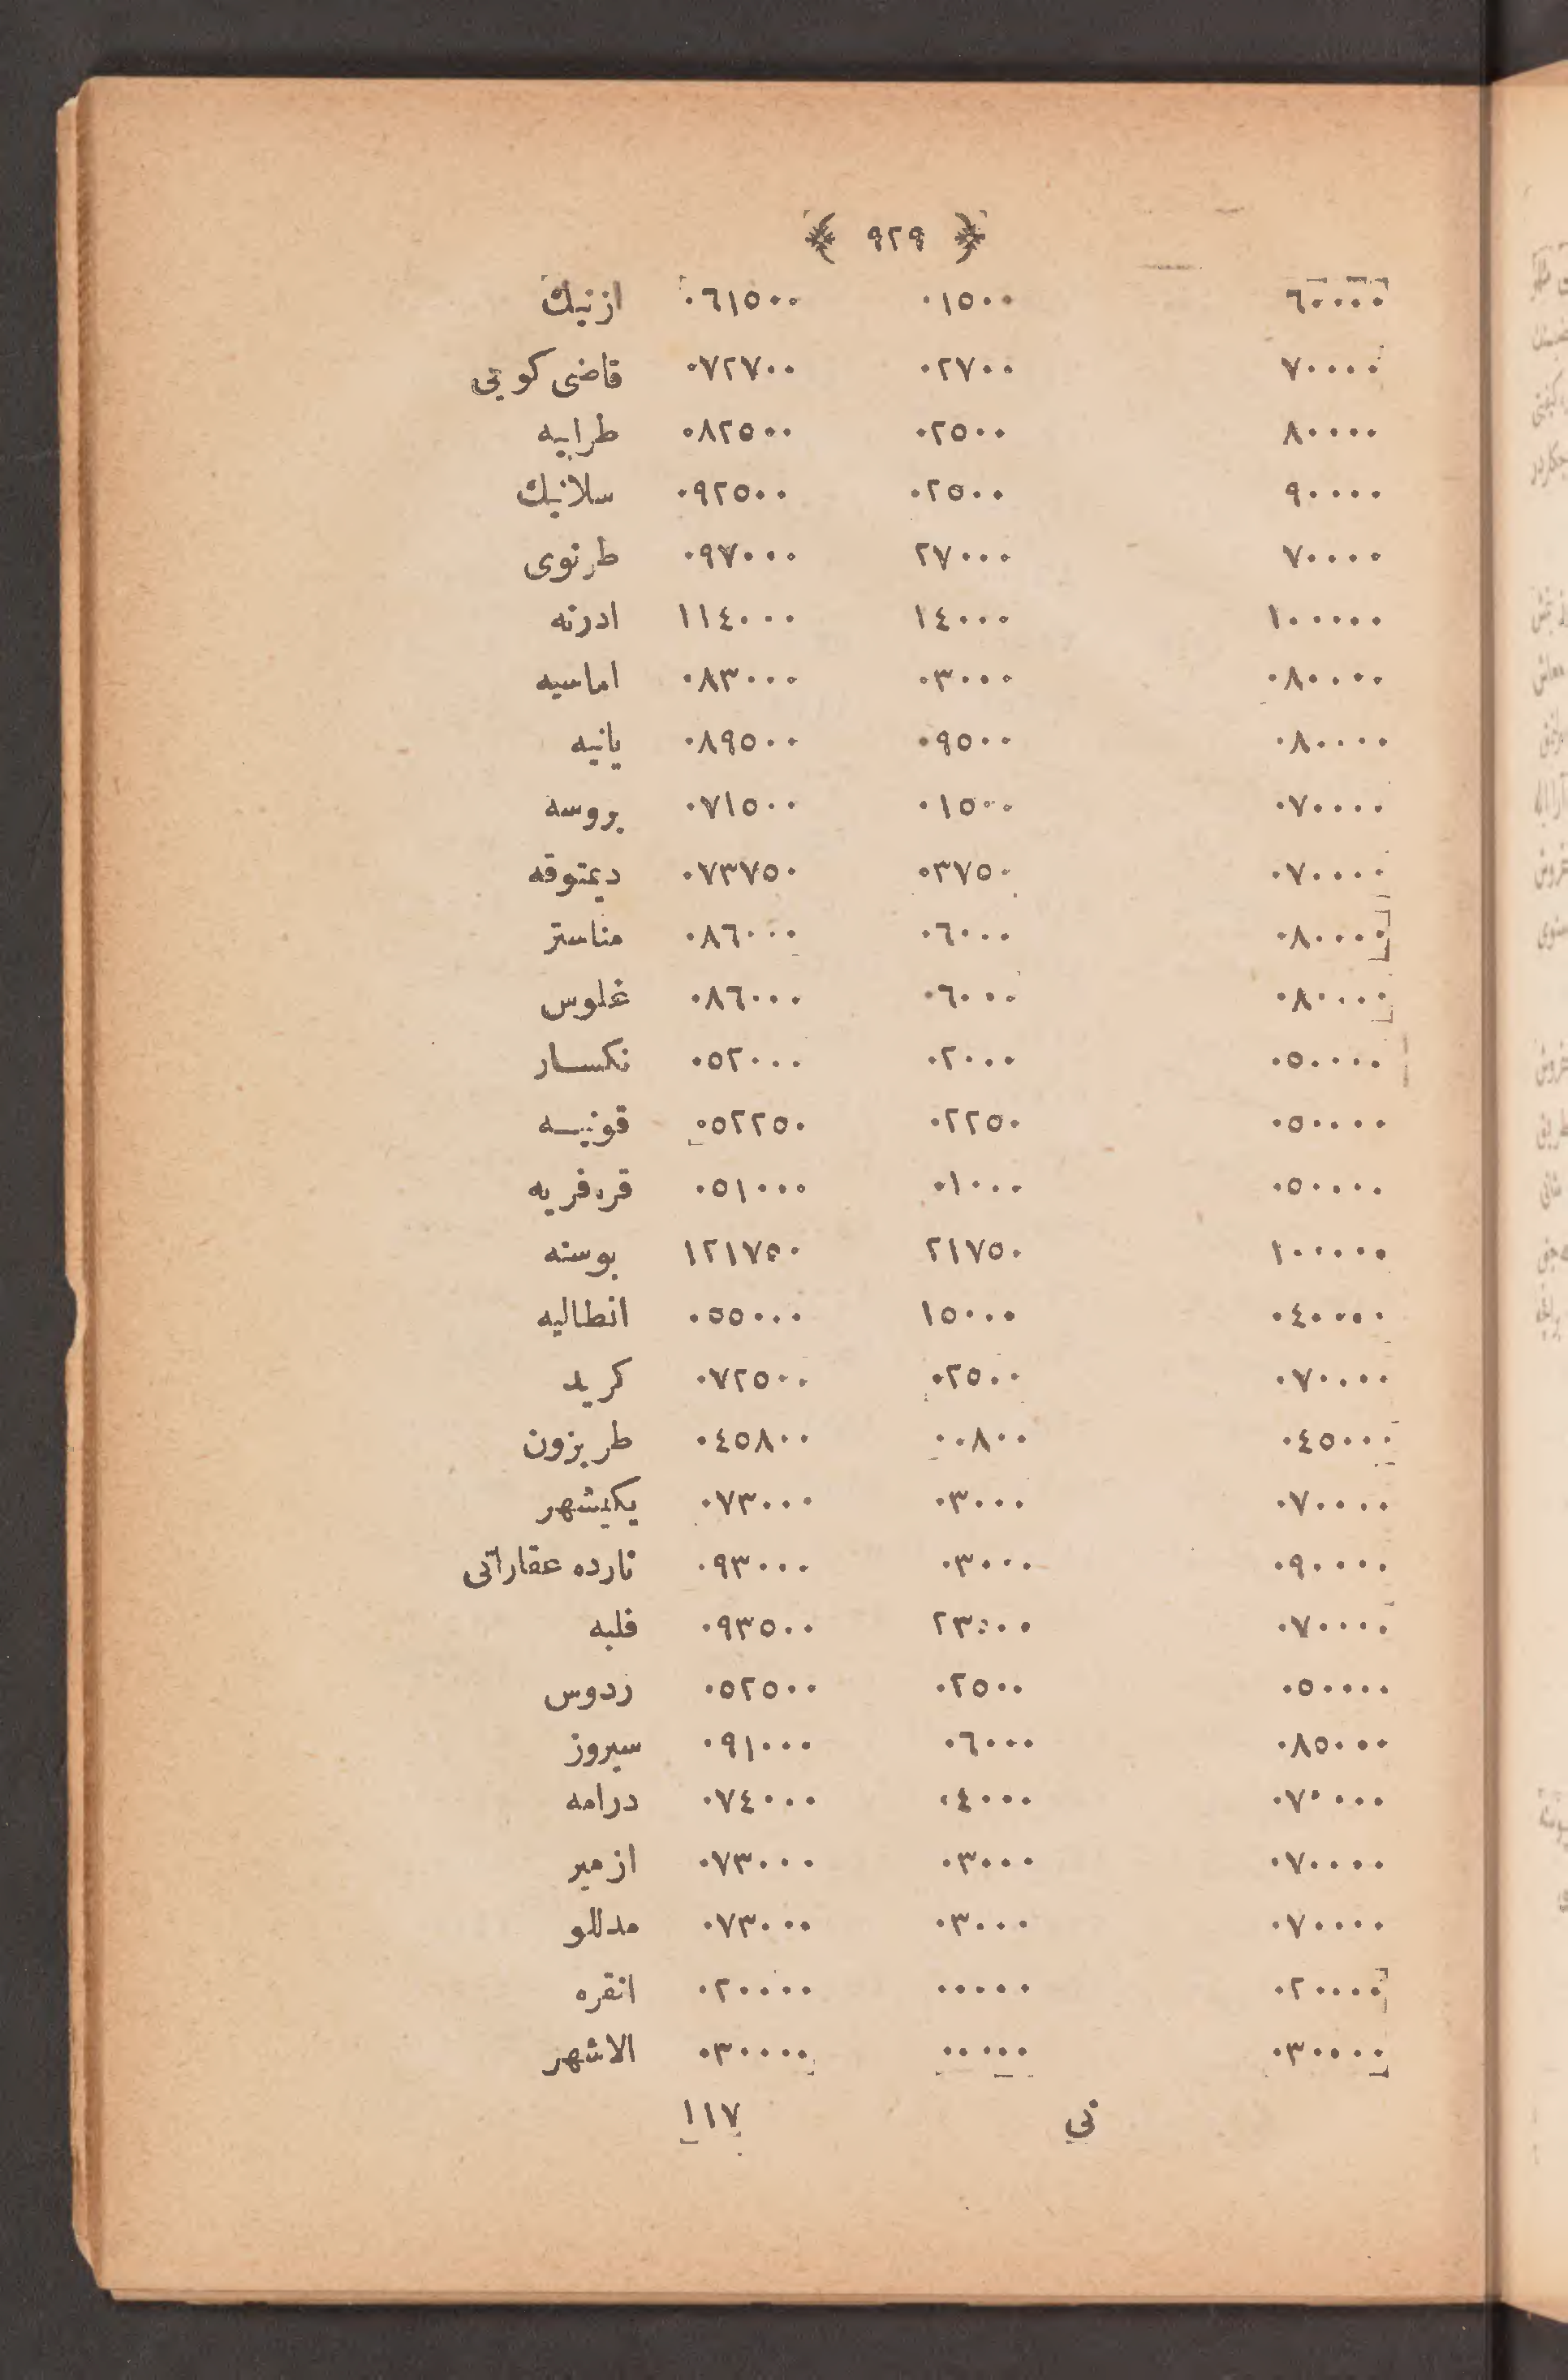 ﴿ ٩٢٩ ﴾
٦٠٠٠٠ ٠١٥٠٠ ٠٦١٥٠٠ ازنيك
٧٠٠٠٠ ٠٢٧٠٠ ٠٧٢٧٠٠ قاضى كويى
٨٠٠٠٠ ٠٢٥٠٠ ٠٨٢٥٠٠ طرابيه
٩٠٠٠٠ ٠٢٥٠٠ ٠٩٢٥٠٠ سلانيك
٧٠٠٠٠ ٢٧٠٠٠ ٠٩٧٠٠٠ طرنوى
١٠٠٠٠٠ ١٤٠٠٠ ١١٤٠٠٠ ادرنه
٠٨٠٠٠٠ ٠٣٠٠٠ ٠٨٣٠٠٠ اماسيه
٠٨٠٠٠٠ ٠٩٥٠٠ ٠٨٩٥٠٠ يانيه
٠٧٠٠٠٠ ٠١٥٠٠ ٠٧١٥٠٠ بروسه
٠٧٠٠٠٠ ٠٣٧٥٠ ٠٧٣٧٥٠ ديمتوقه
٠٨٠٠٠٠ ٠٦٠٠٠ ٠٨٦٠٠٠ مناستر
٠٨٠٠٠٠ ٠٦٠٠٠ ٠٨٦٠٠٠ غلوس
٠٥٠٠٠٠ ٠٢٠٠٠ ٠٥٢٠٠٠ نكسار
٠٥٠٠٠٠ ٠٢٢٥٠ ٠٥٢٢٥٠ قونيه
٠٥٠٠٠٠ ٠١٠٠٠ ٠٥١٠٠٠ قره فريه
١٠٠٠٠٠ ٢١٧٥٠ ١٢١٧٥٠ بوسنه
٠٤٠٠٠٠ ١٥٠٠٠ ٠٥٥٠٠٠ انطاليه
٠٧٠٠٠٠ ٠٢٥٠٠ ٠٧٢٥٠٠ كريد
٠٤٥٠٠٠ ٠٠٨٠٠ ٠٤٥٨٠٠ طربزون
٠٧٠٠٠٠ ٠٣٠٠٠ ٠٧٣٠٠٠ يكيشهر
٠٩٠٠٠٠ ٠٣٠٠٠ ٠٩٣٠٠٠ نارده عقاراتى
٠٧٠٠٠٠ ٢٣٥٠٠ ٠٩٣٥٠٠ فلبه
٠٥٠٠٠٠ ٠٢٥٠٠ ٠٥٢٥٠٠ ردوس
٠٨٥٠٠٠ ٠٦٠٠٠ ٠٩١٠٠٠ سيروز
٠٧٠٠٠٠ ٠٤٠٠٠ ٠٧٤٠٠٠ درامه
٠٧٠٠٠٠ ٠٣٠٠٠ ٠٧٣٠٠٠ ازمير
٠٧٠٠٠٠ ٠٣٠٠٠ ٠٧٣٠٠٠ مدللو
٠٢٠٠٠٠ ٠٠٠٠٠ ٠٢٠٠٠٠ انقره
٠٣٠٠٠٠ ٠٠٠٠٠ ٠٣٠٠٠٠ الاشهر
نى ١١٧